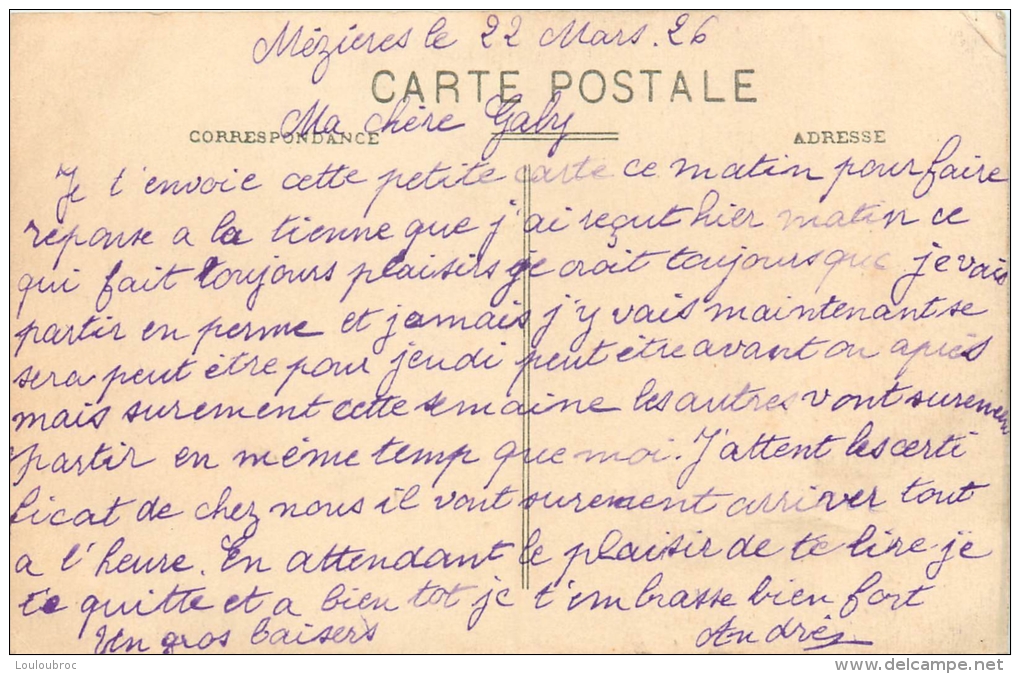 Mézières le 22 Mars. 26
CARTE POSTALE
Ma chère Gaby
CORRESPONDANCE
ADRESSE
Je t'envoie cette petite carte ce matin pour faire
réponse a la tienne que j'ai reçut hier matin ce
qui fait toujours plaisirs je croit toujours que je vais
partir en perme et jamais j'y vais maintenant se
sera peut être pour jeudi peut être avant ou après
mais surement cette semaine les autres vont surement
partir en même temp que moi. J'attent les certi
ficat de chez nous il vont surement arriver tout
a l'heure. En attendant le plaisir de te lire je
te quitte et a bien tot je t'embrasse bien fort
Un gros baisers
André
Louloubroc
www.delcampe.net